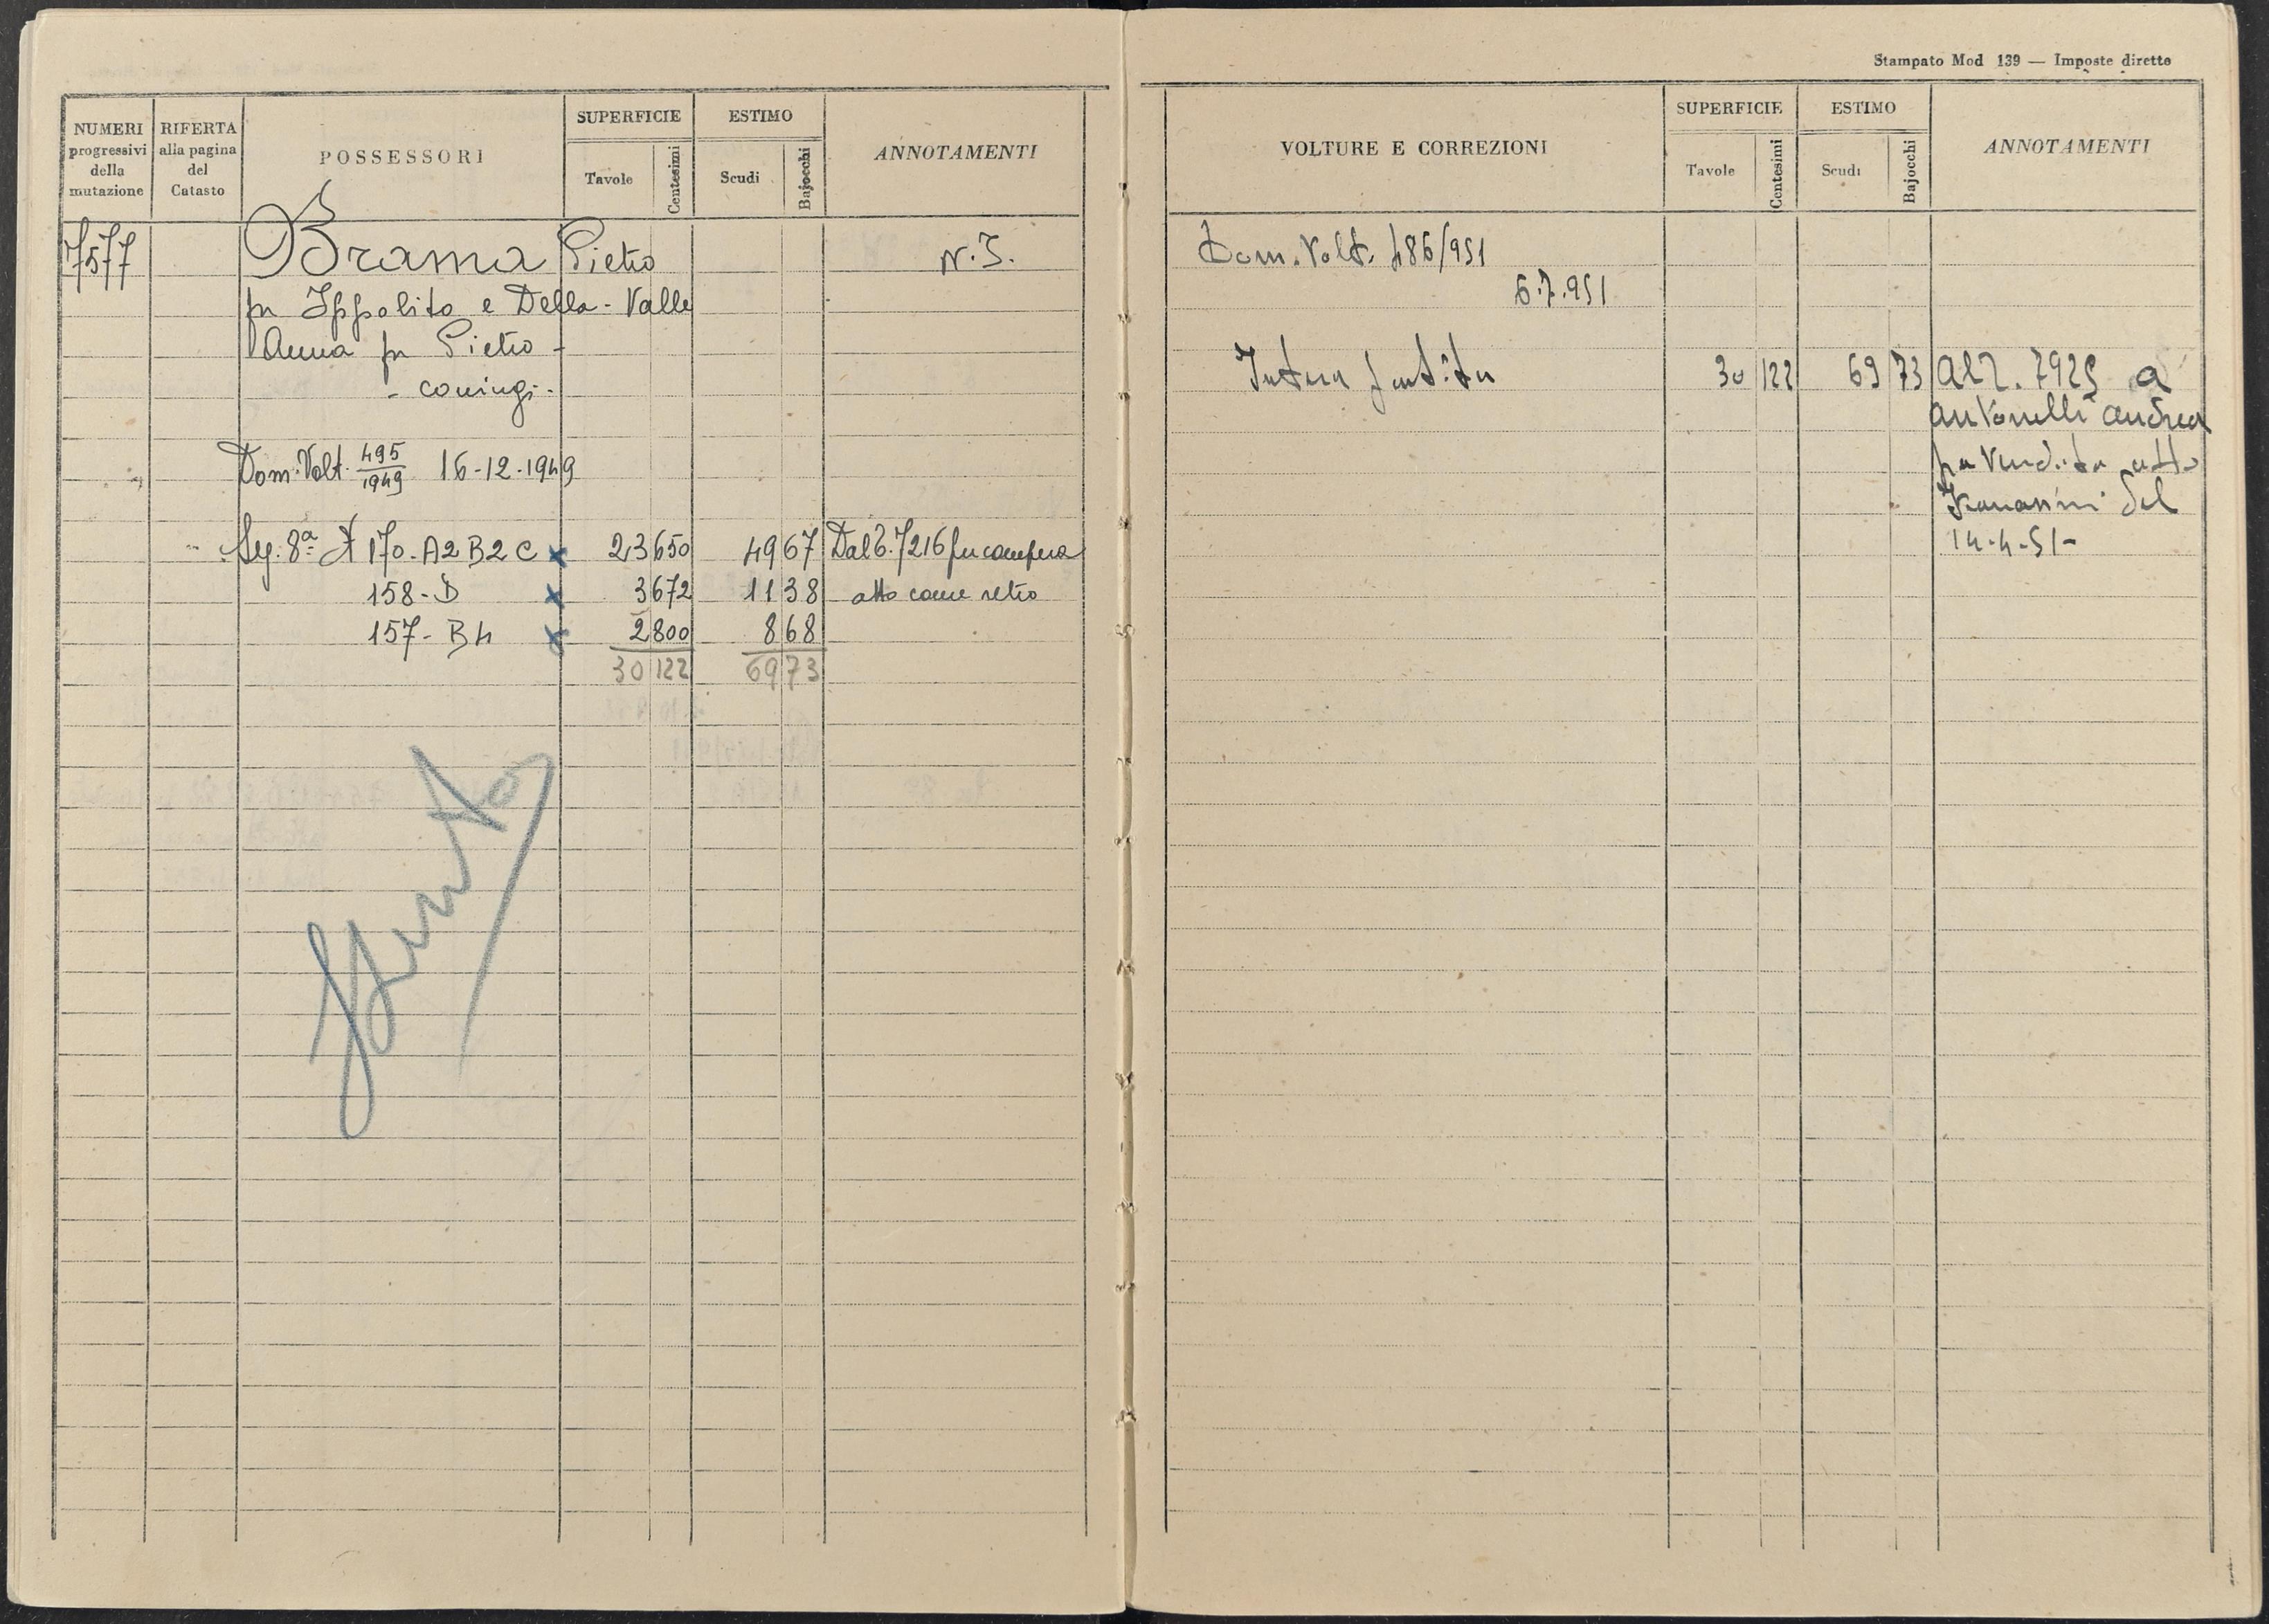 Stampato Mod 139 — Imposte dirette
NUMERI progressivi della mutazione
RIFERTA alla pagina del Catasto
POSSESSORI
SUPERFICIE
Tavole
Centesimi
ESTIMO
Scudi
Bajocchi
ANNOTAMENTI
7577 Brama Pietro N.I.
fu Ippolito e Della-Valle
Anna fu Pietro -
- coniugi -
Dom. Volt. 495/1949 16-12-1949
Sez. 8ª N 170-A2 B2 C x 23 650 49 67 Dal 6.7216 per compera
158-D x 3 672 11 38 atto come retro
157-B4 x 2 800 8 68
30 122 69 73
VOLTURE E CORREZIONI
SUPERFICIE
Tavole
Centesimi
ESTIMO
Scudi
Bajocchi
ANNOTAMENTI
Dom. Volt. 486/951
6.7.951
Intera partita 30 122 69 73 Al 7925 a
Antonelli Andrea
per vendita atto
del
14-4-51-